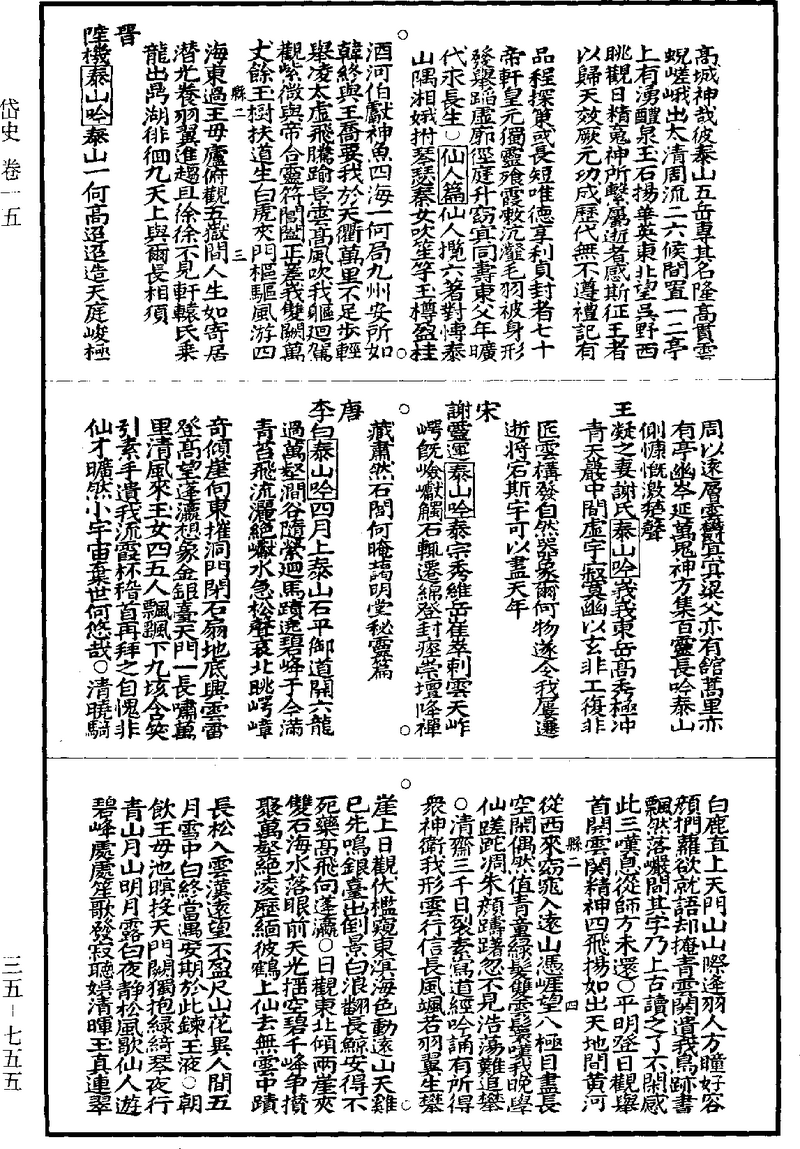 高城神哉彼泰山五岳專其名隆高貫雲
蜺嵯峨出太清周流二六候間置一二亭
上有湧醴泉玉石揚華英東北望吳野西
眺觀日精蒐神所繫屬逝者感斯征王者
以歸天效厥元功成歷代無不遵禮記有
品程探策或長短唯德享利貞封者七十
帝軒皇元獨靈飡霞漱沆瀣毛羽被身形
發舉蹈虛廓徑庭升窈冥同壽東父年曠
代永長生○仙人篇仙人攬六著對博泰
山隅湘娥拊琴瑟秦女吹笙竽玉樽盈桂
酒河伯獻神魚四海一何局九州安所如
韓終與王喬要我於天衢萬里不足步輕
舉凌太虛飛騰踰景雲高風吹我軀迴駕
觀紫微與帝合靈符閶闔正嵳我雙闕萬
丈餘玉樹扶道生白虎夾門樞驅風游四
縣二 三
海東過王母廬俯觀五嶽間人生如寄居
潛光養羽翼進趨且徐徐不見軒轅氏乗
龍出鼎湖徘徊九天上與爾長相須
晉
陸機泰山吟泰山一何高迢迢造天庭峻極
周以遠層雲鬱冥冥梁父亦有館蒿里亦
有亭幽岑延萬鬼神方集百靈長吟泰山
側慷慨激楚聲
王凝之妻謝氏泰山吟峩峩東岳高秀極冲
青天巖中間虛宇寂寞幽以玄非工復非
匠雲構發自然器象爾何物遂令我屢遷
逝將宕斯宇可以盡天年
宋
謝靈運泰山吟泰宗秀維岳崔崒刺雲天岝
崿旣嶮巘觸石輒遷綿登封瘞崇壇降禪
藏肅然石閭何晻藹明堂秘靈篇
唐
李白泰山吟四月上泰山石平御道開六龍
過萬壑澗谷隨縈迴馬蹟遶碧峰于今滿
青苔飛流灑絕巘水急松聲哀北眺崿嶂
奇傾崖向東摧洞門閉石扇地底興雲雷
登高望蓬瀛想象金銀臺天門一長嘯萬
里清風來玉女四五人飄飄下九垓含笑
引素手遺我流霞杯稽首再拜之自愧非
仙才曠然小宇宙棄世何悠哉○清曉騎
白鹿直上天門山山際逢羽人方瞳好容
顔捫蘿欲就語却掩青雲関遺我鳥跡書
飄然落巖間其字乃上古讀之了不閑感
此三嘆息從師方未還○平明登日觀舉
首開雲関精神四飛揚如出天地間黃河
縣二 四
從西來窈窕入遠山憑崖望八極目盡長
空閑偶然值青童緑髮雙雲鬟嘆我晚學
仙蹉跎凋朱顔躊躇忽不見浩蕩難追攀
○清齋三千日裂素寫道經吟誦有所得
衆神衛我形雲行信長風颯若羽翼生攀
崖上日觀伏檻窺東溟海色動遠山天雞
已先鳴銀臺出倒景白浪翻長鯨安得不
死藥高飛向蓬瀛○日觀東北傾兩崖夾
雙石海水落眼前天光摇空碧千峰争攅
聚萬壑絕凌歷緬彼鶴上仙去無雲中蹟
長松入雲漢遠望不盈尺山花異人間五
月雪中白終當遇安期於此鍊玉液○朝
飲王母池瞑投天門闗獨抱緑綺琴夜行
青山月山明月露白夜静松風歌仙人遊
碧峰處處笙歌發寂聴娛清暉玉真連翠
岱史 卷一五
三五－七五五